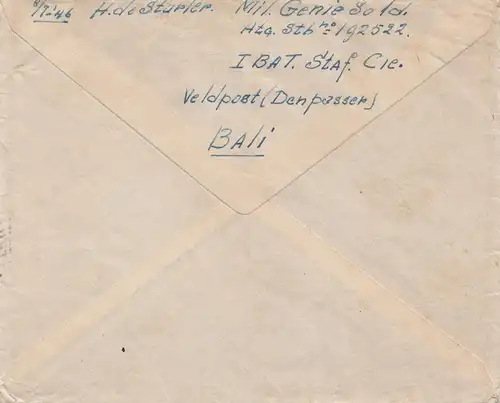 9/7-'46 H. de Sturler. Mil. Genie Sold.
Htg. Stb no = 192522.
I BAT. Staf. Cie.
Veldpost (Denpasser)
BALI